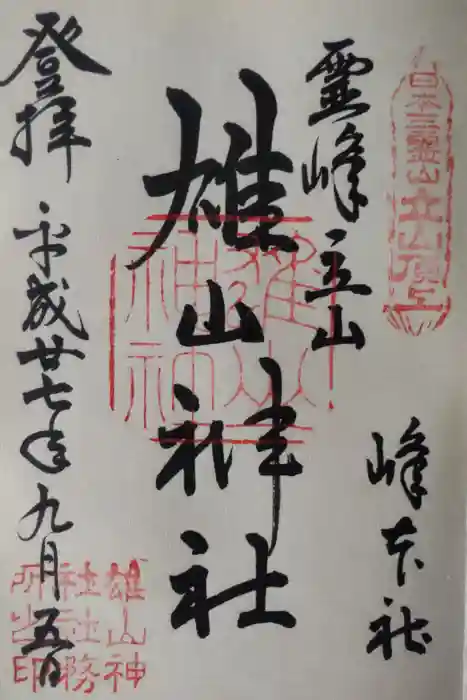 日本三霊山立山頂上
霊峰立山
峰本社
雄山神社
雄山神社
登拝 平成廿七年九月五日
雄山神
社社務
所之印